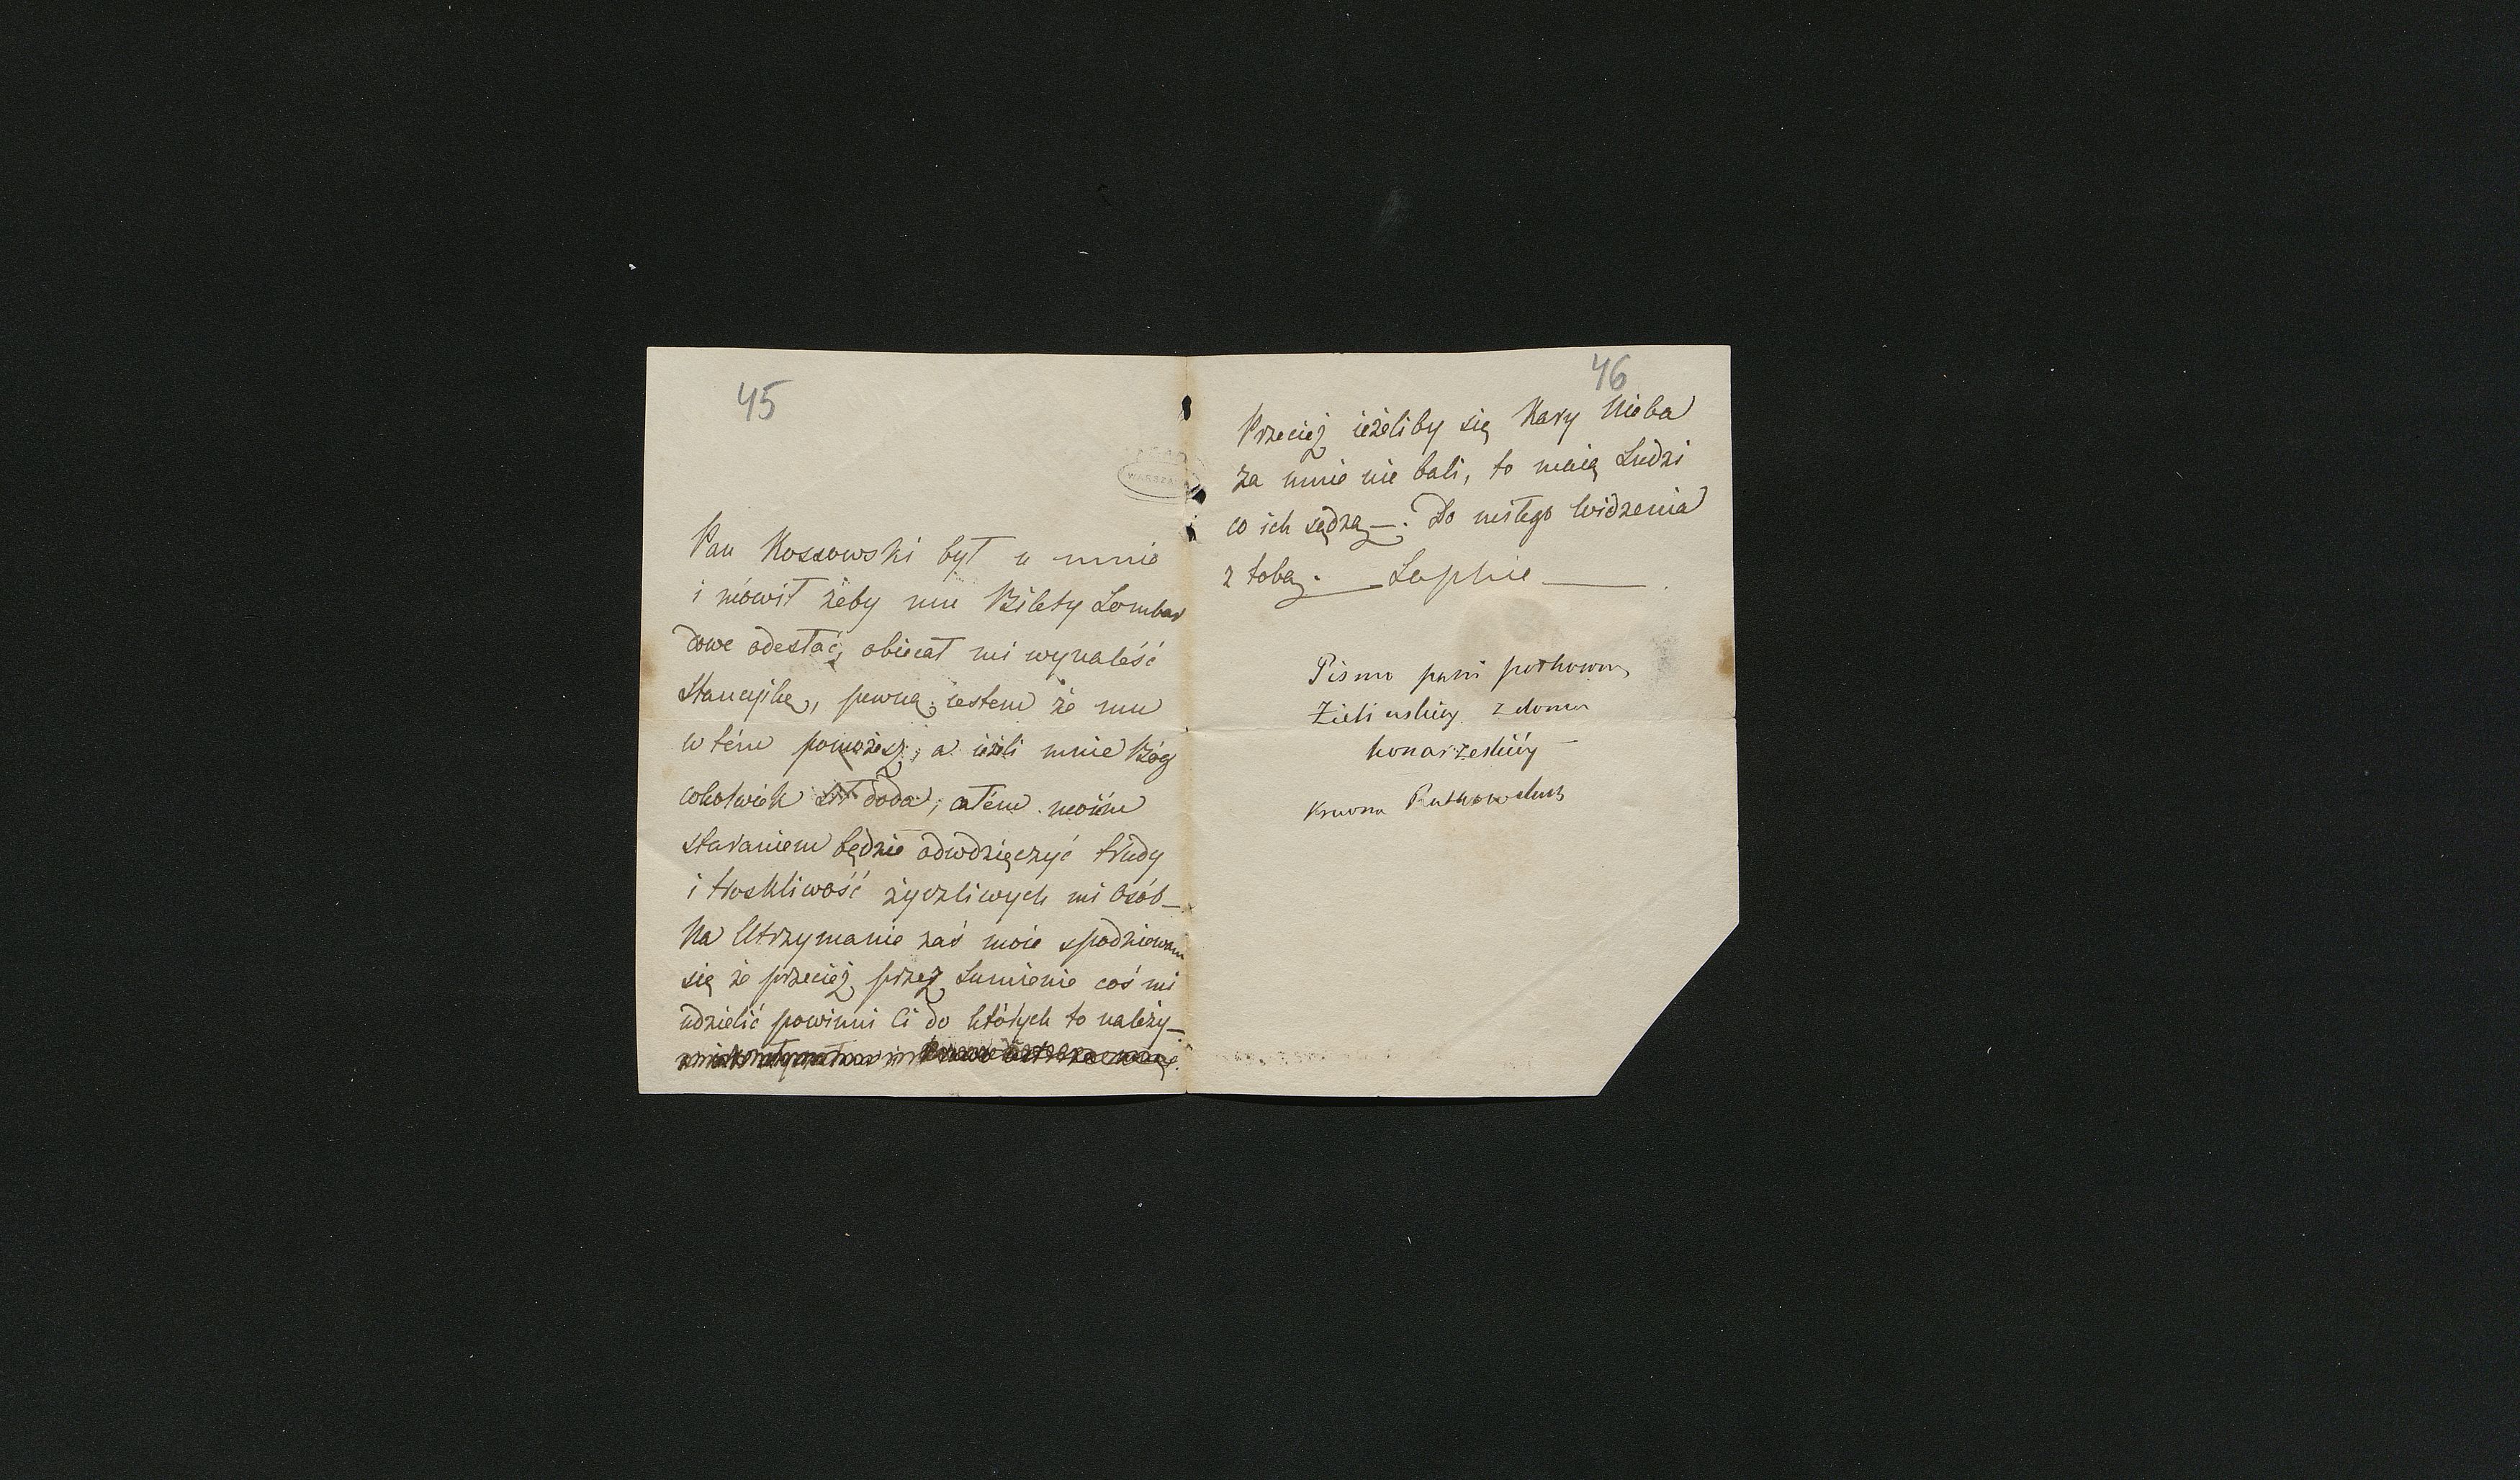 45
Pan Kossowski był u mnie
i mówił żeby mu Bilety Lombar
dowe odesłać, obiecał mi wynaleść
Stancyikę, pewną iestem że mu
w tém pomożesz, a ieżeli mnie Bóg
cokolwiek Sił doda, całém moiém
staraniem będzie odwdzięczyć trudy
i troskliwość życzliwych mi Osób_
Na Utrzymanie zaś moie spodziewam
się że przecięż przez Sumienie coś mi
udzielić powinni Ci do których to należy_
46
Przecięż ieżeliby się Kary Nieba
za mnie nie bali, to maią Ludzi
co ich sądzą_. Do miłego widzenia
z tobą. _Sophie_
Pismo pani
Zielińskiéy z domu
konarzeskiéy
WARSZAWA